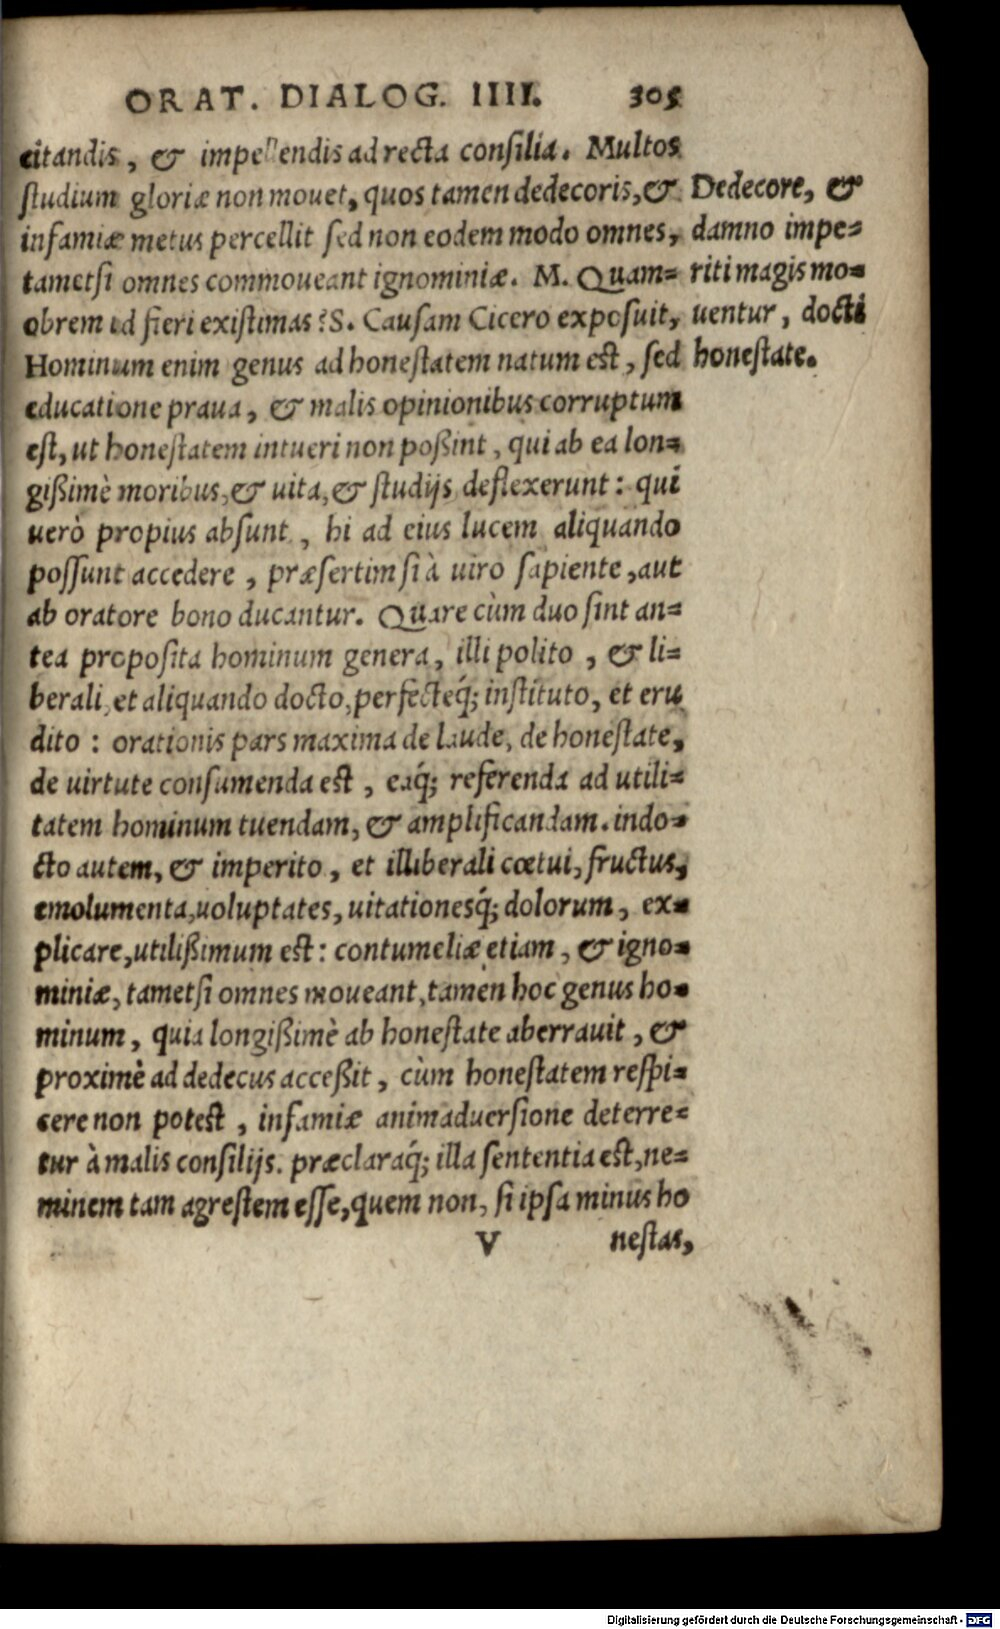 ORAT. DIALOG. IIII. 305
citandis, & impellendis ad recta consilia. Multos
studium gloriæ non mouet, quos tamen dedecoris, &
infamiæ metus percellit sed non eodem modo omnes,
tametsi omnes commoueant ignominiæ. M. Quam-
obrem id fieri existimas? S. Causam Cicero exposuit,
Hominum enim genus ad honestatem natum est, sed
educatione praua, & malis opinionibus corruptum
est, ut honestatem intueri non poßint, qui ab ea lon-
gißimè moribus, & uita, & studijs deflexerunt: qui
uerò propius absunt, hi ad eius lucem aliquando
possunt accedere, præsertim si à uiro sapiente, aut
ab oratore bono ducantur. Quare cùm duo sint an-
tea proposita hominum genera, illi polito, & li-
berali, et aliquando docto, perfecteq́; instituto, et eru
dito: orationis pars maxima de laude, de honestate,
de uirtute consumenda est, eaq́; referenda ad utili-
tatem hominum tuendam, & amplificandam. indo-
cto autem, & imperito, et illiberali cœtui, fructus,
emolumenta, uoluptates, uitationesq́; dolorum, ex-
plicare, utilißimum est: contumeliæ etiam, & igno-
miniæ, tametsi omnes moueant, tamen hoc genus ho-
minum, quia longißimè ab honestate aberrauit, &
proximè ad dedecus acceßit, cùm honestatem respi-
cere non potest, infamiæ animaduersione deterre-
tur à malis consilijs. præclaraq́; illa sententia est, ne-
minem tam agrestem esse, quem non, si ipsa minus ho
V nestas,
Dedecore, &
damno impe-
riti magis mo-
uentur, docti
honestate.
Digitalisierung gefördert durch die Deutsche Forschungsgemeinschaft - DFG